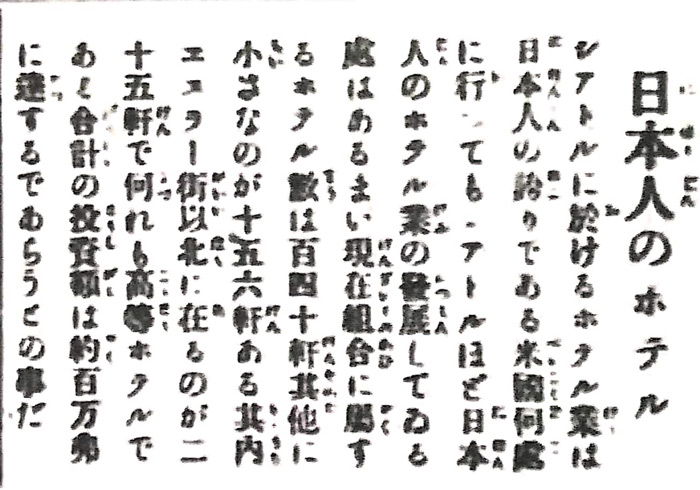 日本人のホテル
シアトルに於けるホテル業は
日本人の誇りである米國何處
に行つてもシアトルほど日本
人のホテル業の發展してゐる
處はあるまい現在組合に屬す
るホテル數は百四十軒其他に
小さなのが十五六軒ある其内
エスラー街以北に在るのが二
十五軒で何れも高等ホテルで
あく合計の投資額は約百万弗
に達するであらうとの事だ